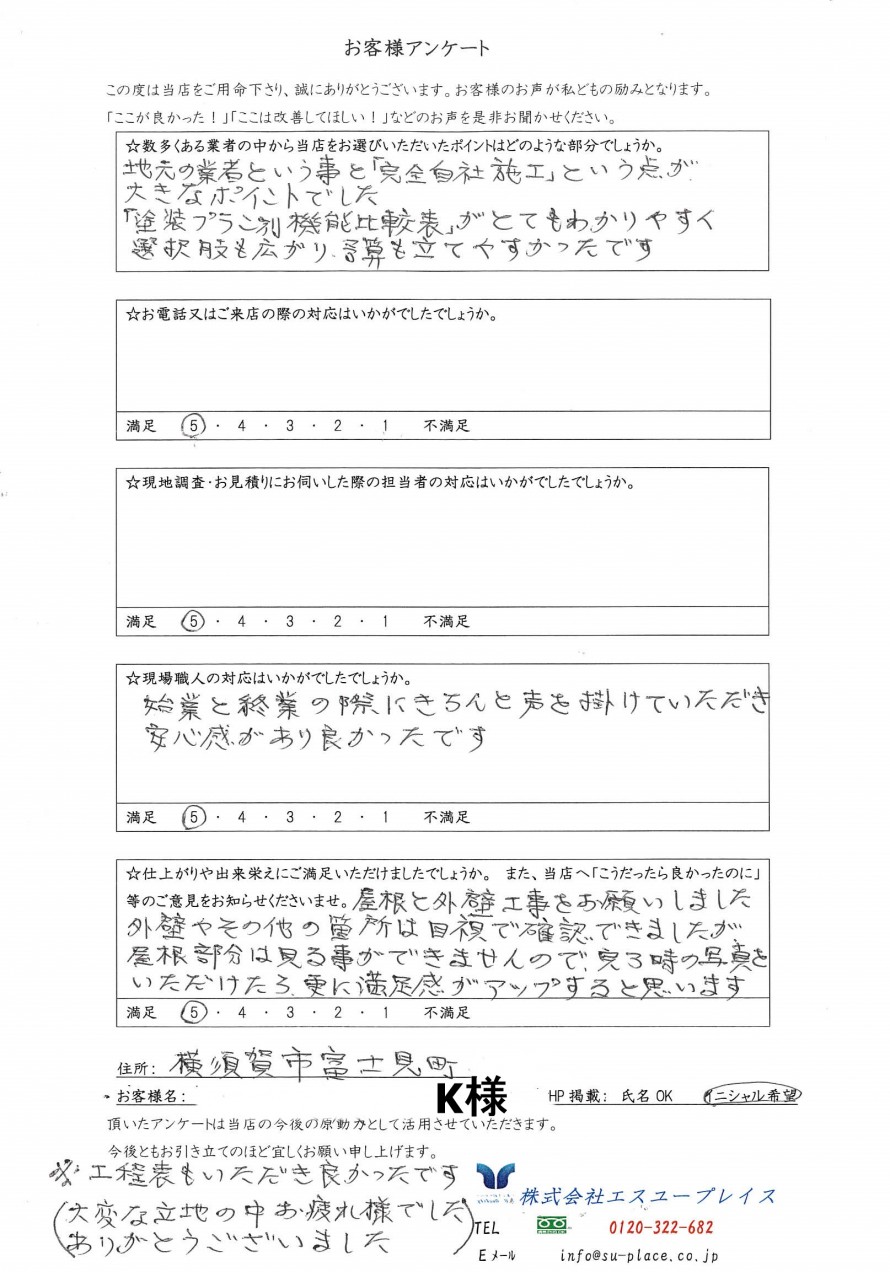 お客様アンケート
この度は当店をご用命下さり、誠にありがとうございます。お客様のお声が私どもの励みとなります。
「ここが良かった！」「ここは改善してほしい！」などのお声を是非お聞かせください。
☆数多くある業者の中から当店をお選びいただいたポイントはどのような部分でしょうか。
地元の業者という事と「完全自社施工」という点が
大きなポイントでした
「塗装プラン別機能比較表」がとてもわかりやすく
選択肢も広がり、予算も立てやすかったです
☆お電話又はご来店の際の対応はいかがでしたでしょうか。
満足 5 ・ 4 ・ 3 ・ 2 ・ 1 不満足
☆現地調査・お見積りにお伺いした際の担当者の対応はいかがでしたでしょうか。
満足 5 ・ 4 ・ 3 ・ 2 ・ 1 不満足
☆現場職人の対応はいかがでしたでしょうか。
始業と終業の際にきちんと声を掛けていただき
安心感があり良かったです
満足 5 ・ 4 ・ 3 ・ 2 ・ 1 不満足
☆仕上がりや出来栄えにご満足いただけましたでしょうか。 また、当店へ「こうだったら良かったのに」
等のご意見をお知らせくださいませ。屋根と外壁工事をお願いしました
外壁やその他の箇所は目視で確認できましたが
屋根部分は見る事ができませんので、完了時の写真を
いただけたら、更に満足感がアップすると思います
満足 5 ・ 4 ・ 3 ・ 2 ・ 1 不満足
住所: 横須賀市富士見町
お客様名: K様 HP掲載: 氏名OK イニシャル希望
頂いたアンケートは当店の今後の原動力として活用させていただきます。
今後ともお引き立てのほど宜しくお願い申し上げます。
※工程表もいただき良かったです
(大変な立地の中お疲れ様でした
ありがとうございました)
株式会社エスユープレイス
TEL 0120-322-682
Eメール info@su-place.co.jp